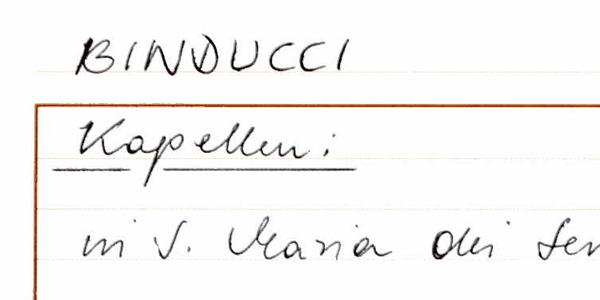 BINDUCCI
Kapellen:
in S. Maria dei Ser